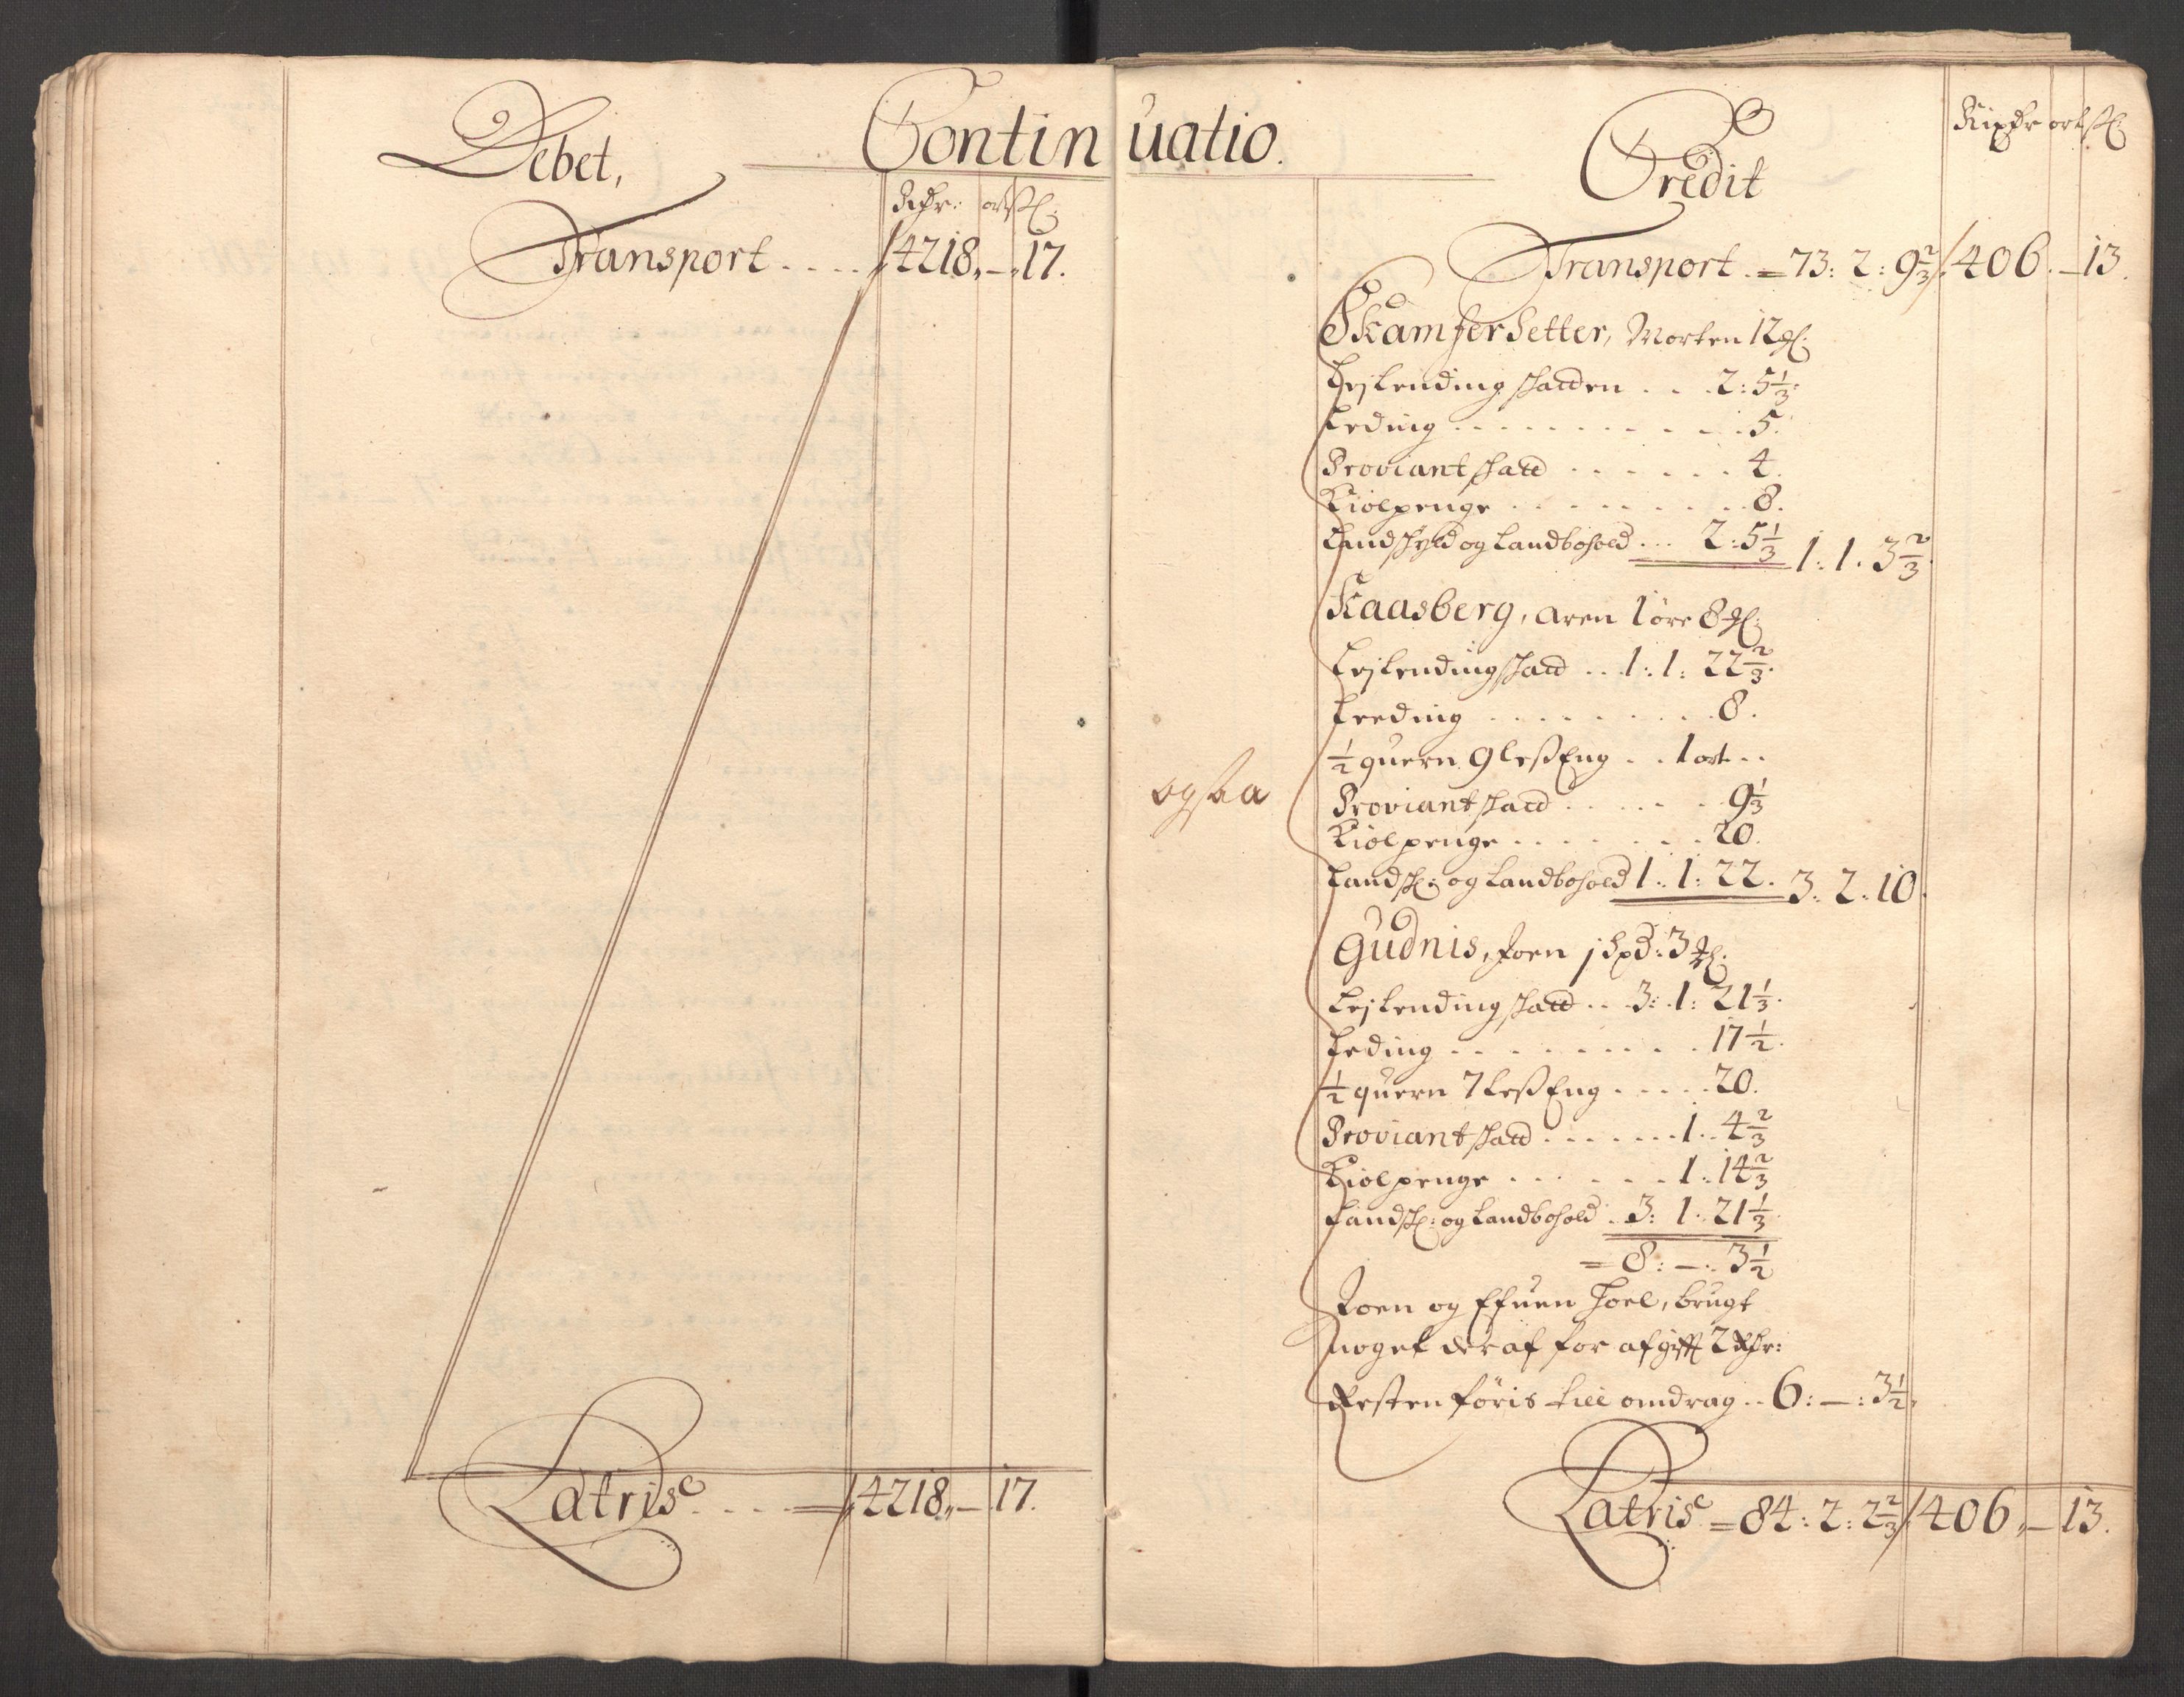 Debet, Continuatio. Credit
Rdr: ort ſſ: Rixdr ort ſſ:
Transport . . . . 4218,, – ,, 17.
Transport . = 73: 2: 9 2/3 / 406. – 13.
Skamfersetter, Morten 12 ſſ:
Leilending skatten . . . 2: 5 1/3:
Leding . . . . . . . . . . 5.
Proviant skatt . . . . . . 4.
Kiølpenge . . . . . . . . 8.
Landskyld og Landbohold . . . 2: 5 1/3 1: 1. 3 2/3.
Kaasberg, Aren 1 øre 8 ſſ:
Leilendingskatt . . 1: 1: 22 2/3.
Leeding . . . . . . . . . 8.
1/2 quern 9 Less Eng . . 1 ort . .
Proviant skatt . . . . . . 9 1/3
Kiølpenge . . . . . . . 20.
ogsaa
Landsk: og Landbohold 1: 1: 22. 3: 2: 10.
Gudnis, Joen j spd: 3 ſſ:
Leilending skatt . . 3: 1: 21 1/3.
Leding . . . . . . . . . 17 1/2.
1/2 quern 7 Less Eng . . . . . 20.
Proviant skatt . . . . . . 1: 4 2/3
Kiølpenge . . . . . . 1: 14 2/3
Landsk: og Landbohold . 3: 1: 21 1/3.
= 8: – : 3 1/2
Joen og Efuen Hoel, brugt
noget deraf for afgifft 2 Rdr:
Resten føris till omdrag . . 6: – : 3 1/2.
Latris . . . . = 4218,, – 17.
Latris = 84: 2: 2 2/3 / 406,, – 13.